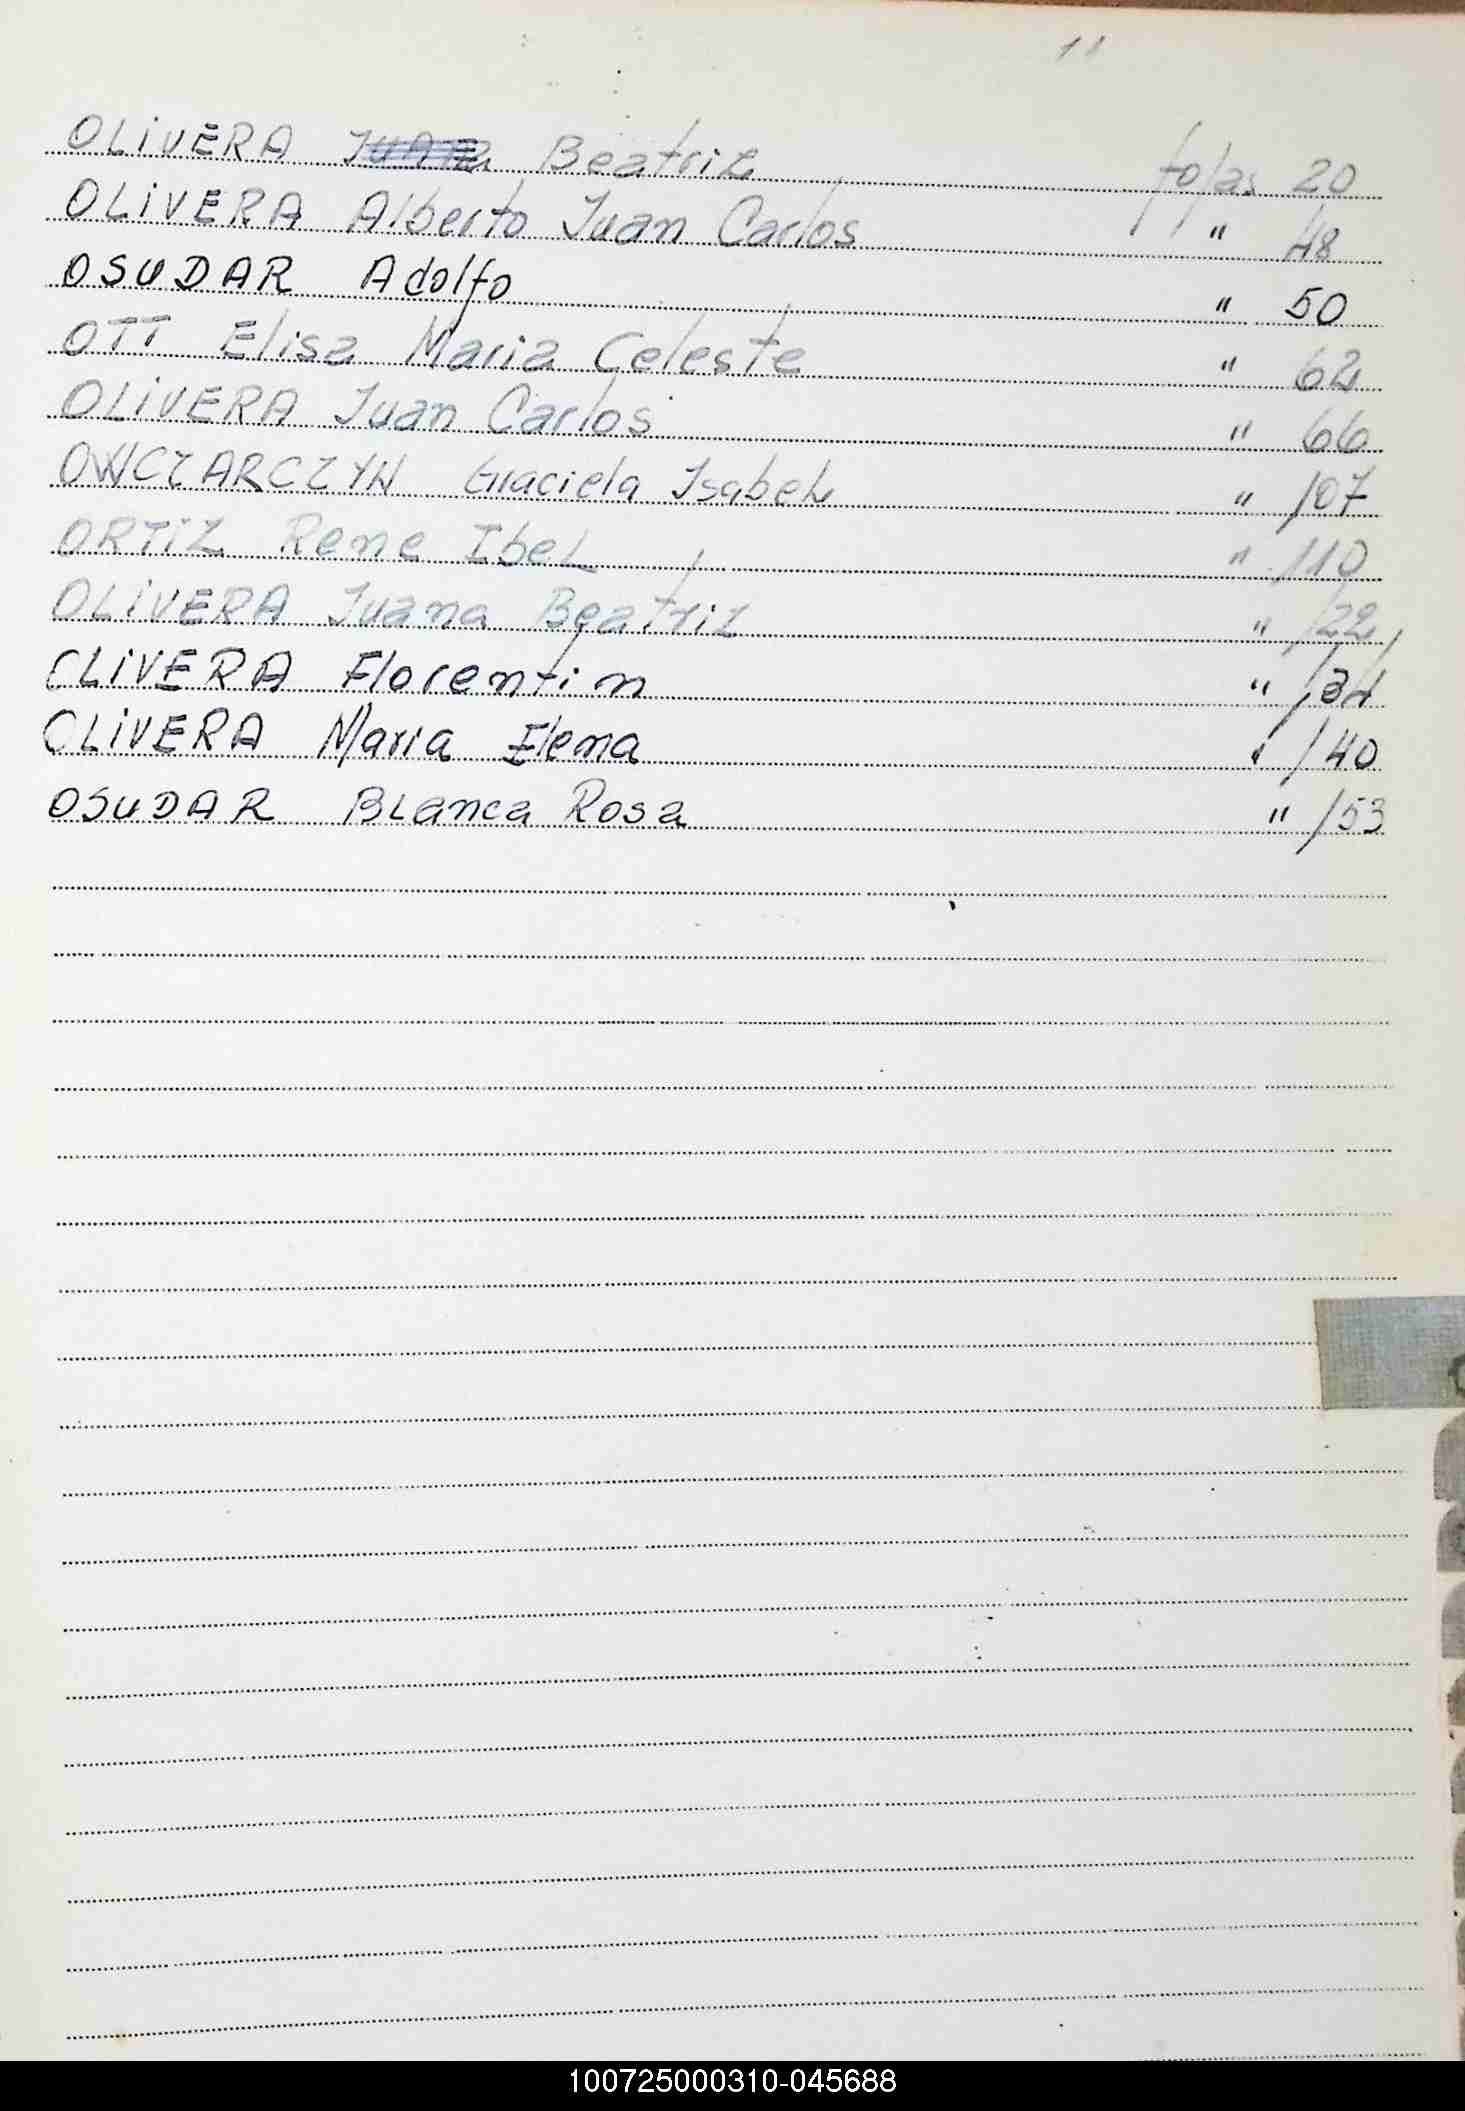 11
OLIVERA Beatriz fojas 20
OLIVERA Alberto Juan Carlos " 48
OSUDAR Adolfo " 50
OTT Elisa Maria Celeste " 62
OLIVERA Juan Carlos " 66
OWCZARCZYN Graciela Isabel " 107
ORTIZ Rene Ibel " 110
OLIVERA Juana Beatriz " 122
OLIVERA Florentin "
OLIVERA Maria Elena " 140
OSUDAR Blanca Rosa " 153
100725000310-045688